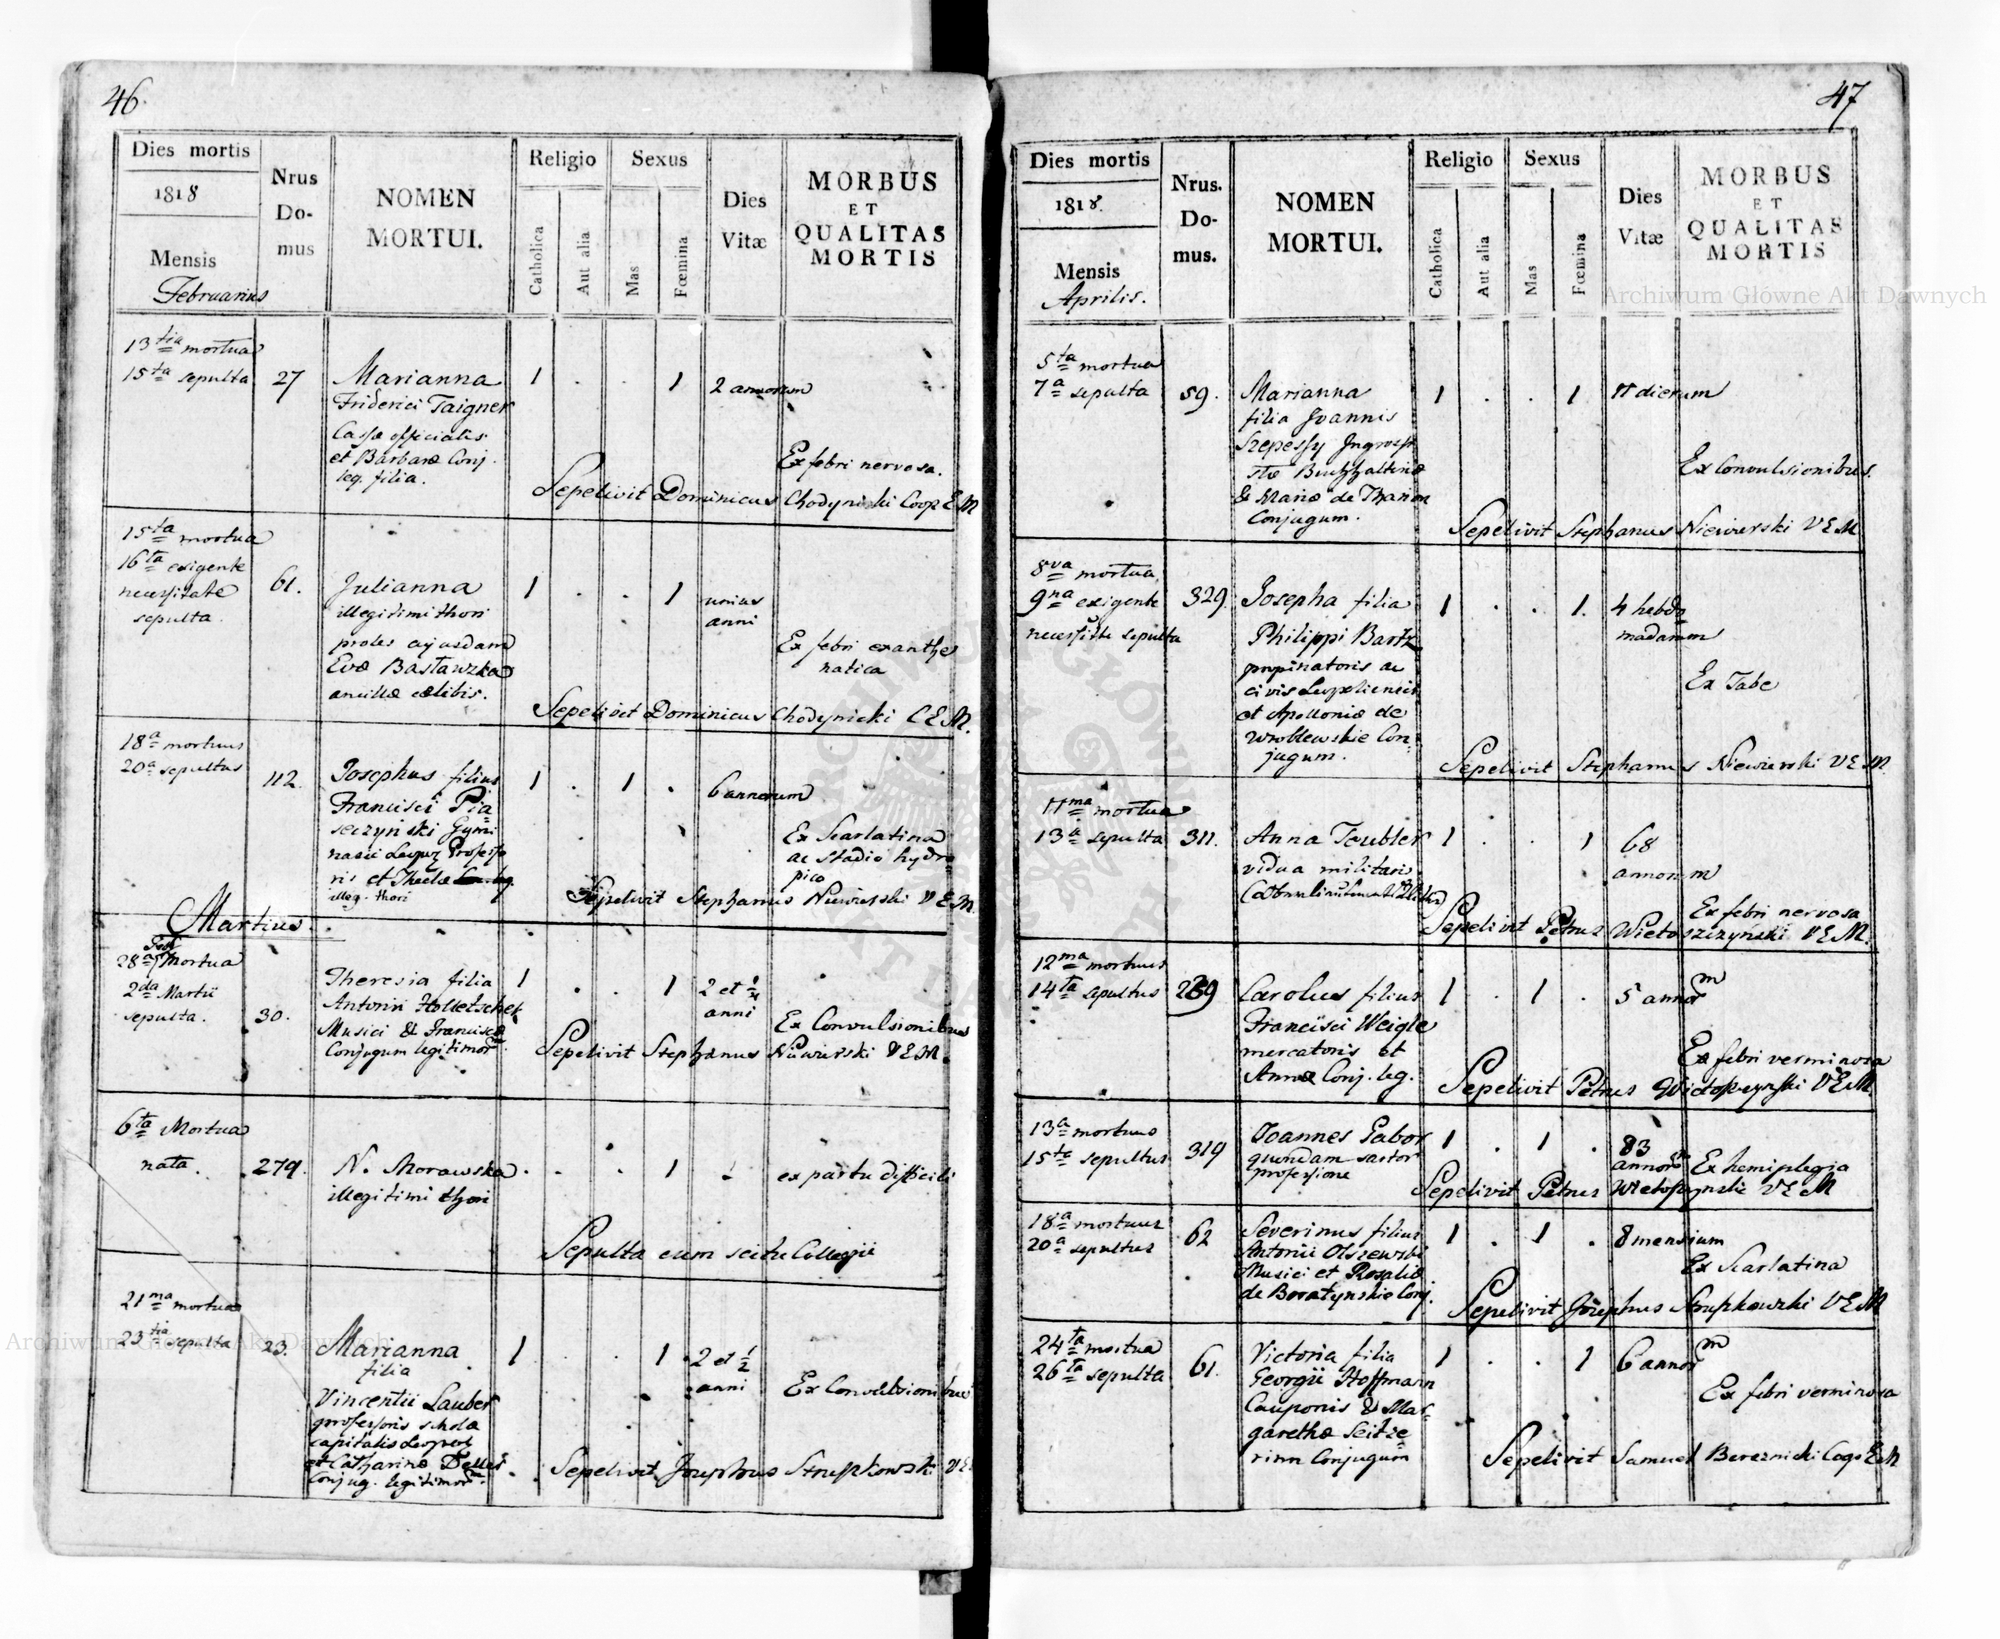 46.
Dies mortis
1818
Mensis
Februarius
Nrus
Do-
mus
NOMEN
MORTUI.
Religio
Catholica
Aut alia
Sexus
Mas
Fœmina
Dies
Vitæ
MORBUS
ET
QUALITAS
MORTIS
13tia mortua
15ta sepulta
27
Marianna
Friderici Taigner
Cassæ officialis
et Barbaræ Conj.
leg. filia.
1 . . 1
2 annorum
Ex febri nervosa.
Sepelivit Dominicus Chodynicki Coop E M
15ta mortua
16ta exigente
necessitate
sepulta.
61.
Julianna
illegitimi thori
proles cujusdam
Evæ Bastawzka
ancillæ cælibis.
1 . . 1
unius
anni
Ex febri exanthe
matica
Sepelivit Dominicus Chodynicki C E M.
18a mortuus
20a sepultus
42.
Josephus filius
Francisci Pia=
seczyński Gym
nasii Leopol Professo
ris et Theclæ
illeg. thori
1 . 1 .
6 annorum
Ex Scarlatina
ac Stadio hydro
pico
Sepelivit Stephanus Niewierski V E M.
Martius.
28a mortua
2da Martii
sepulta.
30.
Theresia filia
Antonii Holletschek
Musici & Franciscæ
Conjugum legitimorum.
1 . . 1
2 et 1/4
anni
Ex Convulsionibus
Sepelivit Stephanus Niewierski V E M.
6ta Mortua
nata.
279.
N. Morawska
illegitimi thori
. . . 1
ex partu difficili
Sepulta cum scitu Collegii
21ma mortua
23tia sepulta
23.
Marianna
filia
Vincentii Lauber
professoris scholæ
capitalis Leopol
et Catharinæ
Conjug. legitimorum.
1 . . 1
2 et 1/2
anni
Ex Convulsionibus
Sepelivit Josephus Strupkowski V E
47
Dies mortis
1818.
Mensis
Aprilis.
Nrus.
Do-
mus.
NOMEN
MORTUI.
Religio
Catholica
Aut alia
Sexus
Mas
Fœmina
Dies
Vitæ
MORBUS
ET
QUALITAS
MORTIS
5ta mortua
7a sepulta
59.
Marianna
filia Joannis
Szepessy
& Mariæ de
Conjugum.
1 . . 1
dierum
Ex Convulsionibus.
Sepelivit Stephanus Niewierski V E M
8va mortua
9na exigente
necessitate sepulta
329.
Josepha filia
Philippi Bartz
propinatoris ac
civis Leopoliensis
et Apolloniæ de
Wroblewskie Con=
jugum.
1 . . 1.
4 hebdo
madarum
Ex Tabe
Sepelivit Stephanus Niewierski V E M.
11ma mortua
13a sepulta
311.
Anna Teubler
vidua militaris
1 . . 1
68
annorum
Ex febri nervosa
Sepelivit Petrus Wietoszczyński V E M.
12ma mortuus
14ta sepultus
289
Carolus filius
Francisci Weigle
mercatoris et
Annæ Conj. leg.
1 . 1 .
5 annorm
Ex febri verminosa
Sepelivit Petrus Wietoszczyński V E M.
13a mortuus
15ta sepultus
319
Joannes Gabor
quondam sartor
professione
1 . 1 .
83
annorm
Ex hemiplegia
Sepelivit Petrus Wietoszczynski V E M
18a mortuus
20a sepultus
62
Severinus filius
Antonii Olszewski
Musici et Rosaliæ
de Boratynskie Conj.
1 . 1 .
8 mensium
Ex Scarlatina
Sepelivit Josephus Strupkowski V E M
24ta mortua
26ta sepulta
61.
Victoria filia
Georgii Hoffmann
Cauponis & Mar=
garethæ Seitze=
rinn Conjugum
1 . . 1
6 annorm
Ex febri verminosa
Sepelivit Samuel Bereznicki Coop E M
Archiwum Główne Akt Dawnych
Archiwum Główne Akt Dawnych